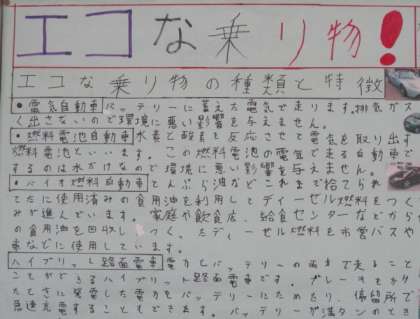 エコな乗り物!
エコな乗り物の種類と特徴
•電気自動車 バッテリーに蓄えた電気で走ります。排気ガス
く出さないので環境に悪い影響を与えません。
•燃料電池自動車 水素と酸素を反応させて電気を取り出す
燃料電池といいます。この燃料電池の電気で走る自動車で
するのは水だけなので環境に悪い影響を与えません。
•バイオ燃料自動車 てんぷら油などこれまで捨てられ
てたに使用済みの食用油を利用してディーゼル燃料をつく
みが進んでいます。家庭や飲食店、給食センターなどから
の食用油を回収し つく たディーゼル燃料を市営バスや
車などに使用しています。
ハイブリット路面電車 電力とバッテリーの両方で走ること
ことができるハイブリット路面電車です。ブレーキをか
たときに発電した電力をバッテリーにためたり、停留所で
急速充電することもできます。バッテリーが満タンのとき